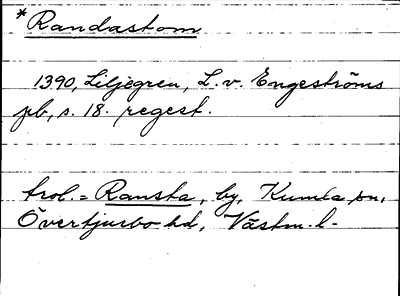 *Randastom
1390, Liljegren, L. v. Engeströms
pb, s. 18. regest.
trol. = Ransta, by, Kumla sn,
Övertjurbo hd, Västm. l.